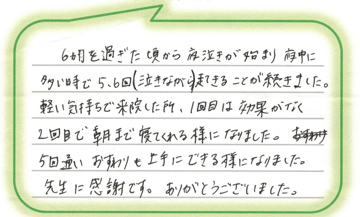 6ヶ月を過ぎた頃から夜泣きが始まり夜中に
多い時で5、6回(泣きながら)起きることが続きました。
軽い気持ちで来院した所、1回目は効果がなく
2回目で朝まで寝てくれる様になりました。
5回通いおすわりも上手にできる様になりました。
先生に感謝です。ありがとうございました。